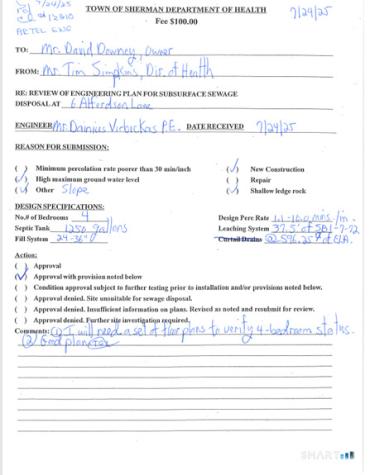 7/24/25
TOWN OF SHERMAN DEPARTMENT OF HEALTH
7/29/25
Fee $100.00
ARTEL ENG
TO: Mr. David Downey, Owner
FROM: Mr. Tim Simpkins, Dir. of Health
RE: REVIEW OF ENGINEERING PLAN FOR SUBSURFACE SEWAGE
DISPOSAL AT 6 Lane
ENGINEER Mr. Dainius Virbickas P.E. DATE RECEIVED 7/24/25
REASON FOR SUBMISSION:
( ) Minimum percolation rate poorer than 30 min/inch (✓) New Construction
(✓) High maximum ground water level ( ) Repair
(✓) Other Slope (✓) Shallow ledge rock
DESIGN SPECIFICATIONS:
No.# of Bedrooms 4 Design Perc Rate 1.1-16.0 mins/in.
Septic Tank 1250 gallons Leaching System 37.5' of
Fill System 24-36" Curtain Drains @ 596.25 of ELA.
Action:
( ) Approval
(✓) Approval with provision noted below
( ) Condition approval subject to further testing prior to installation and/or provisions noted below.
( ) Approval denied. Site unsuitable for sewage disposal.
( ) Approval denied. Insufficient information on plans. Revised as noted and resubmit for review.
( ) Approval denied. Further site investigation required.
Comments: (1) I will need a set of floor plans to verify 4-bedroom status.
(2) Good plan
SMART